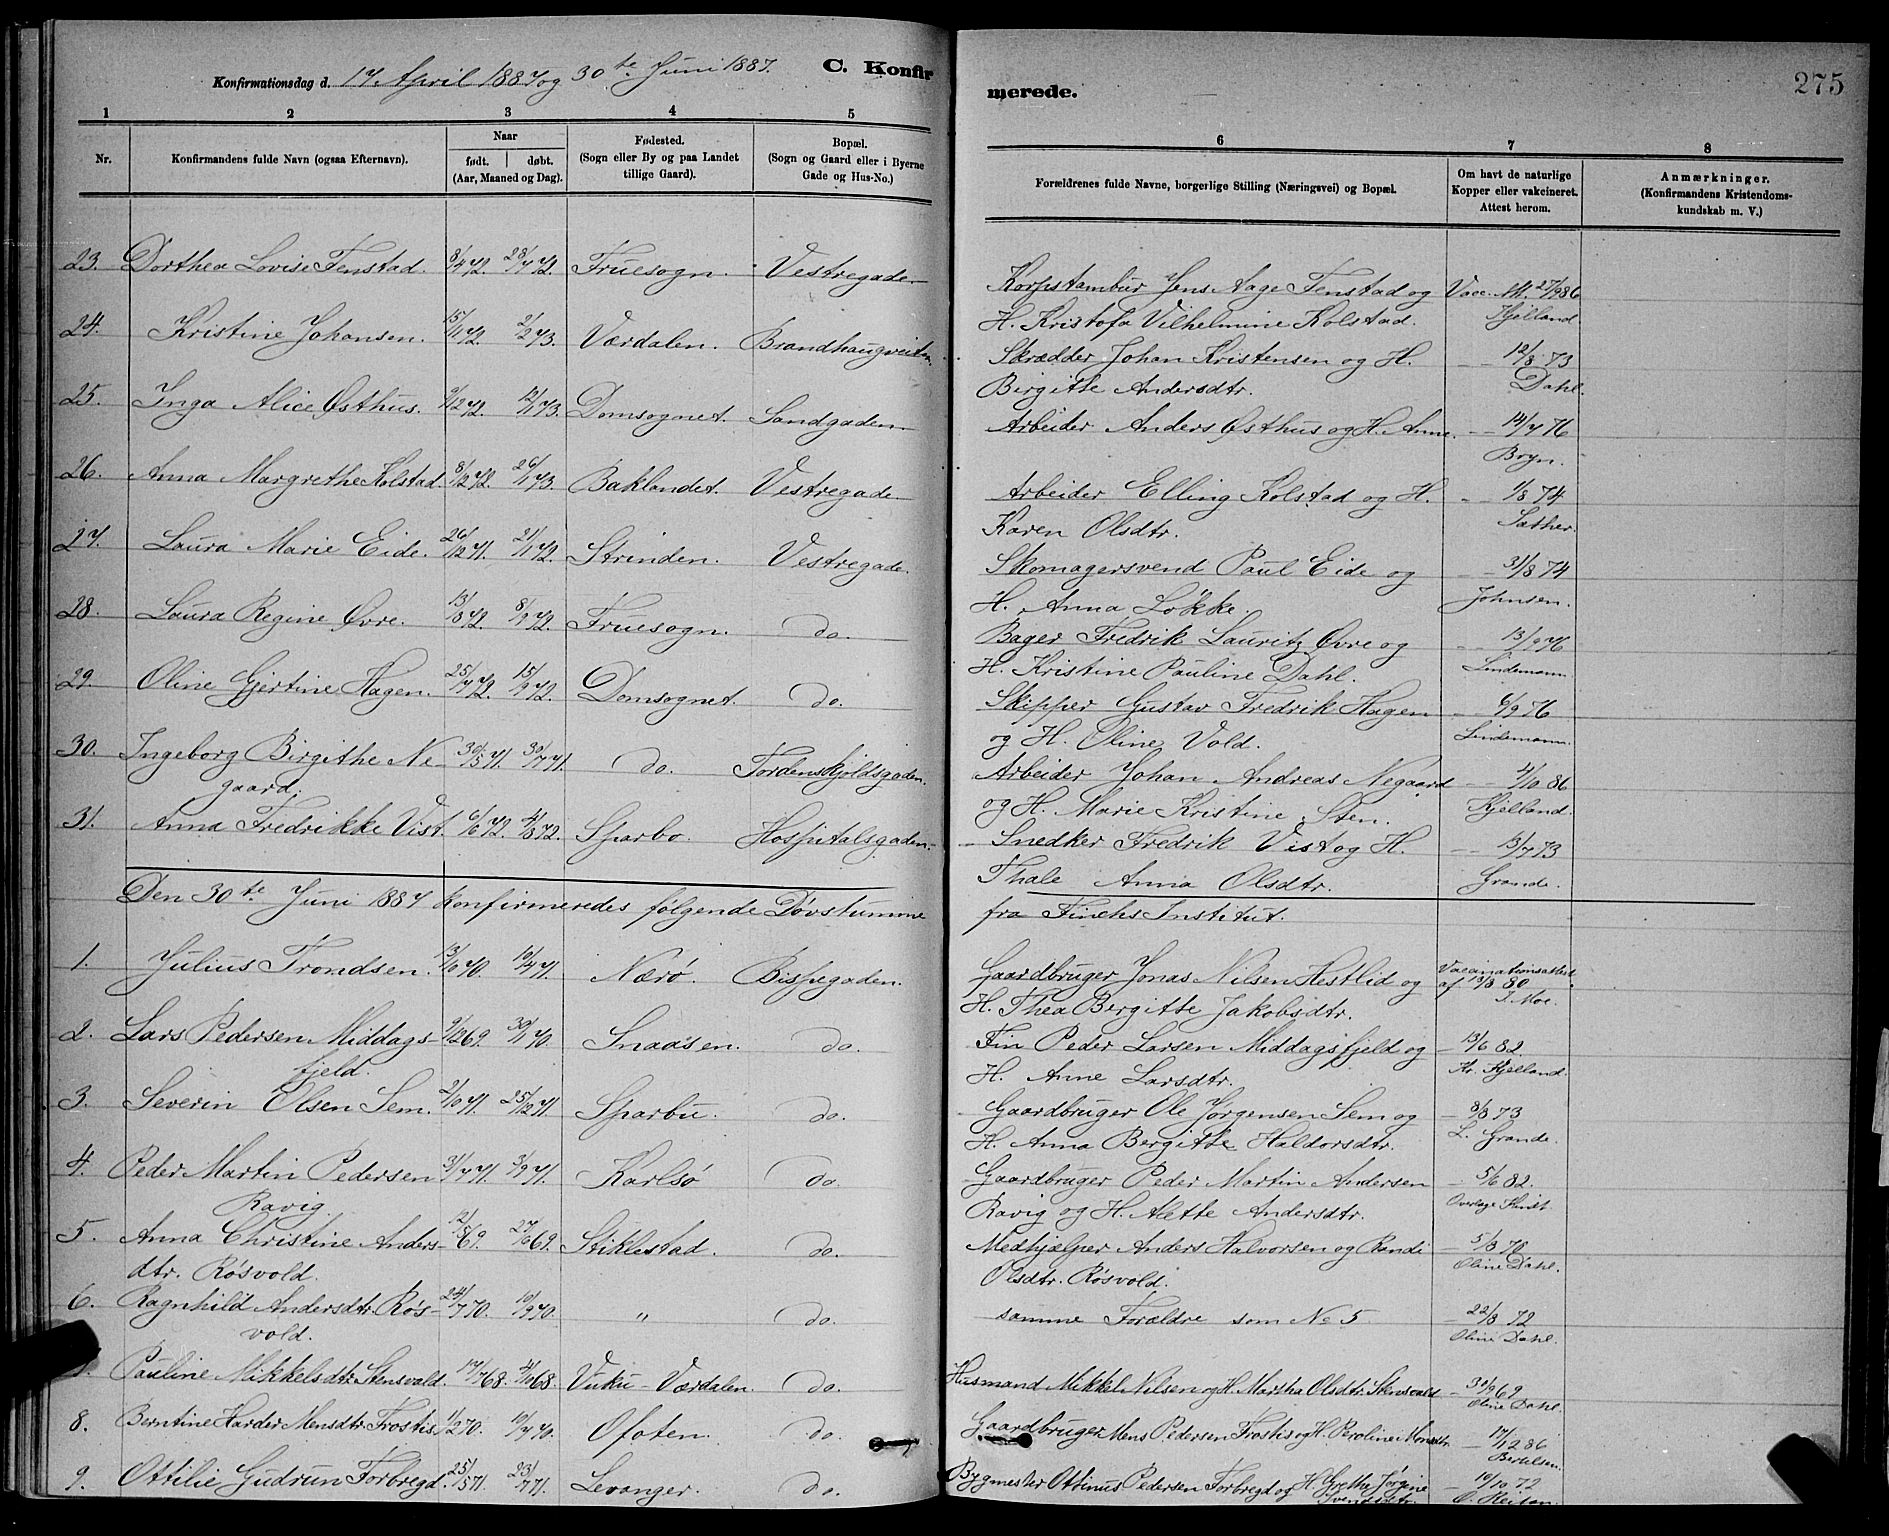 Konfirmationsdag d. 17. April 1887 og 30te Juni 1887. C. Konfir
merede. 275
1 2 3 4 5
6 7 8
Nr. Konfirmandens fulde Navn (ogsaa Efternavn). Naar født. døbt. (Aar, Maaned og Dag). Fødested. (Sogn eller By og paa Landet tillige Gaard). Bopæl. (Sogn og Gaard eller i Byerne Gade og Hus-No.)
Forældrenes fulde Navne, borgerlige Stilling (Næringsvei) og Bopæl. Om havt de naturlige Kopper eller vakcineret. Attest herom. Anmærkninger. (Konfirmandens Kristendomskundskab m. V.)
23. Dorthea Lovise Fenstad. 8/4 72. 28/7 72. Fruesogn. Vestregade.
Korpstambur Jens Aage Fenstad og Vacc. Att. 27/9 86
H. Kristofa Vilhelmine Kolstad. Kjelland
24. Kristine Johansen. 15/11 72. 2/2 73. Værdalen. Brandhaugveiten.
Skrædder Johan Kristensen og H. 12/8 73
Birgitte Andersdtr. Dahl.
25. Inga Alice Østhus. 9/12 72. 12/1 73. Domsognet. Sandgaden.
Arbeider Anders Østhus og H. Anne 14/7 76
Bryn.
26. Anna Margrethe Kolstad. 8/12 72. 26/1 73. Baklandet. Vestregade.
Arbeider Elling Kolstad og H. 1/8 74
Karen Olsdtr. Sæther.
27. Laura Marie Eide. 26/12 71. 21/1 72. Strinden. Vestregade.
Skomagersvend Paul Eide og 31/8 74
H. Anna Løkke. Johnsen.
28. Laura Regine Øvre. 13/8 72. 8/9 72. Fruesogn. do.
Bager Fredrik Lauritz Øvre og 13/9 76
H. Kristine Pauline Dahl. Lindemann
29. Oline Gjertine Hagen. 25/7 72. 15/9 72. Domsognet. do.
Skipper Gustav Fredrik Hagen 6/9 76
og H. Oline Vold. Lindemann.
30. Ingeborg Birgithe Ne- 30/5 71. 30/7 71. do. Tordenskjoldsgaden.
gaard.
Arbeider Johan Andreas Negaard 4/10 86
og H. Marie Kristine Sten. Kjelland.
31. Anna Fredrikke Vist. 6/6 72. 4/8 72. Sparbo. Hospitalsgaden.
Snedker Fredrik Vist og H. 13/7 73
Thale Anna Olsdtr. Grande.
Den 30te Juni 1887 konfirmeredes følgende Døvstumme
fra Finchs Institut.
1. Julius Trondsen. 13/10 70. 10/4 71. Nærø. Bispegaden.
Gaardbruger Jonas Nilsen Hestlid og Vaccinationsattest
H. Thea Bergitte Jakobsdtr. af 13/8 80 S. Moe.
2. Lars Pedersen Middags- 9/12 69. 30/1 70. Snaasen. do.
fjeld.
Fin Peder Larsen Middagsfjeld og 13/6 82.
H. Anne Larsdtr. Kr. Kjelland.
3. Severin Olsen Sem. 2/10 71. 25/12 71. Sparbu. do.
Gaardbruger Ole Jørgensen Sem og 8/8 73
H. Anna Bergitte Haldorsdtr. L. Grande.
4. Peder Martin Pedersen 31/7 71. 3/9 71. Karlsø do.
Ravig.
Gaardbruger Peder Martin Andersen 5/6 82.
Ravig og H. Alette Andersdtr.
5. Anna Christine Anders- 12/5 69. 27/6 69. Stiklestad. do.
dtr. Røsvold.
Medhjælper Anders Halvorsen og Randi 5/8 70
Olsdtr. Røsvold. Oline Dahl.
6. Ragnhild Andersdtr. Røs- 24/7 70. 10/9 70. " do.
vold.
samme Forældre som No 5 22/8 72
Oline Dahl.
Pauline Mikkelsdtr. Stensvald. 17/7 68. 4/10 68. Vuku - Værdalen. do.
Husmand Mikkel Nilsen og H. Martha Olsdtr. Stensvald 30/9 69
Oline Dahl.
8. Berntine Harder Mensdtr. Frostis 1/2 70. 10/7 70. Ofoten. do.
Gaardbruger Mens Pedersen Frostis og H. Peroline Monsdtr. 17/12 86
Bertelsen.
9. Ottilie Gudrun Forbregd. 25/5 71. 23/7 71. Levanger. do.
Bygmester Ottinus Pedersen Forbregd og H. Grethe Jørgine 10/10 72